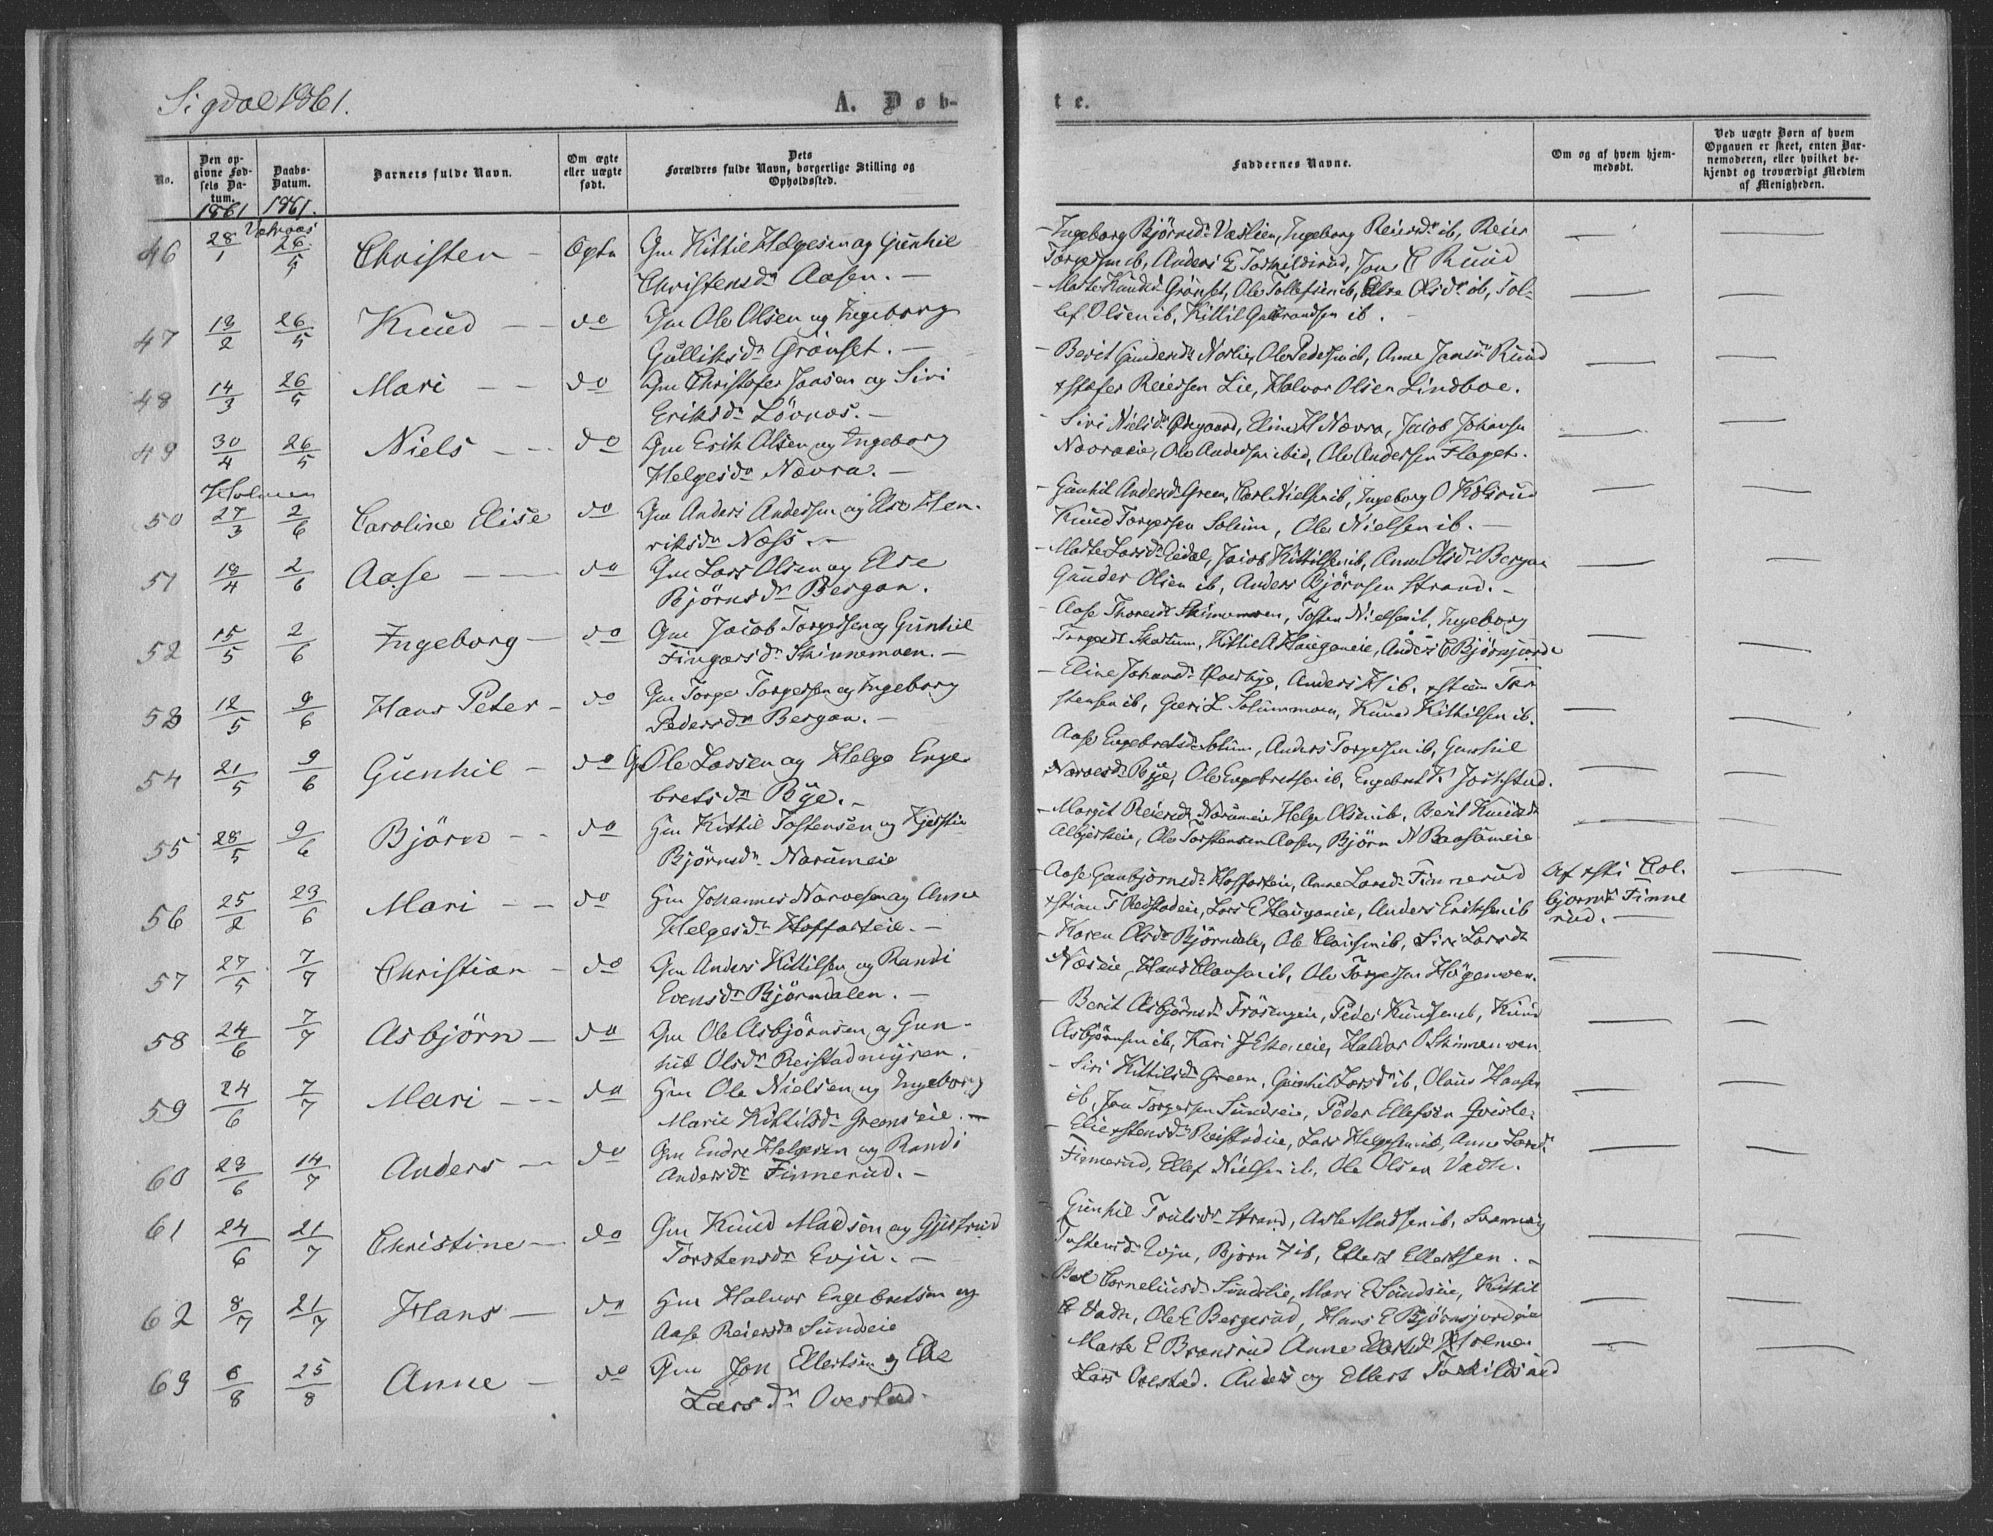 Sigdal 1861.
A. Døb-
te.
No.
Den op-
givne Fød-
sels Da-
tum.
1861
Daabs-
Datum.
1861.
Barnets fulde Navn.
Om ægte
eller uægte
født.
Dets
Forældres fulde Navn, borgerlige Stilling og
Opholdssted.
Faddernes Navne.
Om og af hvem hjem-
medøbt.
Ved uægte Børn af hvem
Opgaven er skeet, enten Bar-
nemoderen, eller hvilket be-
kjendt og troværdigt Medlem
af Menigheden.
46 28/1 26/5 Christen - Ægte Gm Kittil Helgesen og Gunhil
Christensdr Aasen. -
Ingeborg Bjørnsdr Vaslien, Ingeborg Reiersdr ib, Reier
Torgersen ib, Anders E Torkildsrud, Jon C Ruud
47 13/2 26/5 Knud - - do Gm Ole Olsen og Ingeborg
Gulliksdr Grønset. -
- Marte Knudsdr Grønset, Ole Tollefsen ib, Else Olsdr ib, Tol-
lef Olsen ib, Kittil Gulbrandsen ib.
48 14/3 26/5 Mari - - do Gm Christofer Jonsen og Siri
Eriksdr Løvnæs. -
- Berit Gundersdr Norlie, Ole Pedersen ib, Anne Jonsdr Ruud
xstofer Reiersen Lie, Halvor Olsen Lindboe.
49 30/4 26/5 Niels - - do Gm Erik Olsen og Ingeborg
Helgesdr Nævra. -
- Siri Nielsdr Ødegaard, Eline H Nævra, Jacob Johansn
Nævraeie, Ole Andersen ibid, Ole Andersen Flaget.
Holmen
50 27/3 2/6 Caroline Elise do Gm Anders Andersen og Else Hen-
riksdr Næss -
- Gunhil Andersdr Green, Carl Nielsen ib, Ingeborg O Kolsrud
Knud Torgersen Solum, Ole Nielsen ib. -
51 18/4 2/6 Aase - - do Gm Lars Olsen og Else
Bjørnsdr Bergan.
- Marte Larsdr Eidal, Jacob Kittilsen ib, Anne Olsdr Bergan
Gunder Olsen ib, Anders Bjørnsen Strand. -
52 15/5 2/6 Ingeborg - do Gm Jacob Torgersen og Gunhil
Fingarsdr Skinnemoen. -
- Aase Thoresdr Skinnemoen, Tosten Nielsen ib, Ingeborg
Torgersdr Skartum, Kittil A Hauganeie, Anders C Bjørnsjorde
53 12/5 9/6 Hans Peter - do Gm Torger Torgersen og Ingeborg
Pedersdr Bergan. -
- Eline Johansdr Overbye, Anders H ib, xstian Tor-
stensen ib, Guri L Solummoen, Knud Kittilsen ib.
54 21/5 9/6 Gunhil - do Gm Ole Larsen og Helge Enge-
bretsdr Bye. -
Aase Engebretsdr Solum, Anders Torgersen ib, Gunhil
Narvesdr Bye, Ole Engebretsen ib, Engebret K Jokstad.
55 28/5 9/6 Bjørn - - do Gm Kittil Tostensen og Kjersti
Bjørnsdr Narumeie
- Margit Reiersdr Narumeie Helge Olsen ib, Berit Knudsdr
Albjerkeie, Ole Torstensen Aasen, Bjørn N Baasumeie
56 25/2 23/6 Mari - - do Gm Johannes Narvesen og Anne
Helgesdr Hoffarteie. -
Aase Gunbjørnsdr Hoffarteie, Anne Larsdr Finnerud
xstian T Reistadeie, Lars E Hauganeie, Anders Eriksen ib
Af xsti Col-
bjørnsdr Finne
rud. -
57 27/5 7/7 Christian - do Gm Anders Kittilsen og Randi
Evensdr Bjørndalen. -
- Karen Olsdr Bjørndale, Ole Clausen ib, Siri Larsdr
Næseie, Hans Clausen ib, Ole Torgersen Høgemoen.
58 24/6 7/7 Asbjørn - do Gm Ole Asbjørnsen og Gun-
hil Olsdr Reistadmyren.
- Berit Asbjørnsdr Frøsengeie, Peder Knudsen ib, Knud
Asbjørnsen ib, Kari J Ekeneeie, Haldor O Skinnemoen
59 24/6 7/7 Mari - - do Gm Ole Nielsen og Ingeborg
Marie Kittilsdr Greenseie. -
- Siri Kittilsdr Green, Gunhil Larsdr ib, Olaus Hansen
ib, Jon Torgersen Sundseie, Peder Ellefsen Qvisle.
60 23/6 14/7 Anders - do Gm Endre Helgesen og Randi
Andersdr Finnerud. -
- Elie xstensdr Reistadeie, Lars Helgesen ib, Anne Larsdr
Finnerud, Ellef Nielsen ib, Ole Olsen Vadn.
61 24/6 21/7 Christine - do Gm Knud Madsen og Gjertrud
Torstensdr Evju. -
- Gunhil Trulsdr Strand, Aste Madsen ib, Svannaug
Tostensdr Evju, Bjørn T ib, Ellert Ellertsen. -
62 8/7 21/7 Hans - do Gm Halvor Engebretsen og
Aase Reiersdr Sundseie
Berte Corneliusdr Sundseie, Mari E Sundseie, Kittil
E Vadn, Ole E Bergerud, Hans E Bjørnsjordeie
63 6/8 25/8 Anne - do Gm Jon Ellertsen og Else
Larsdr Overstad.
Marte E Brænsrud Anne Ellertsdr Holmen
Lars Overstad. Anders og Ellert Torkildsrud